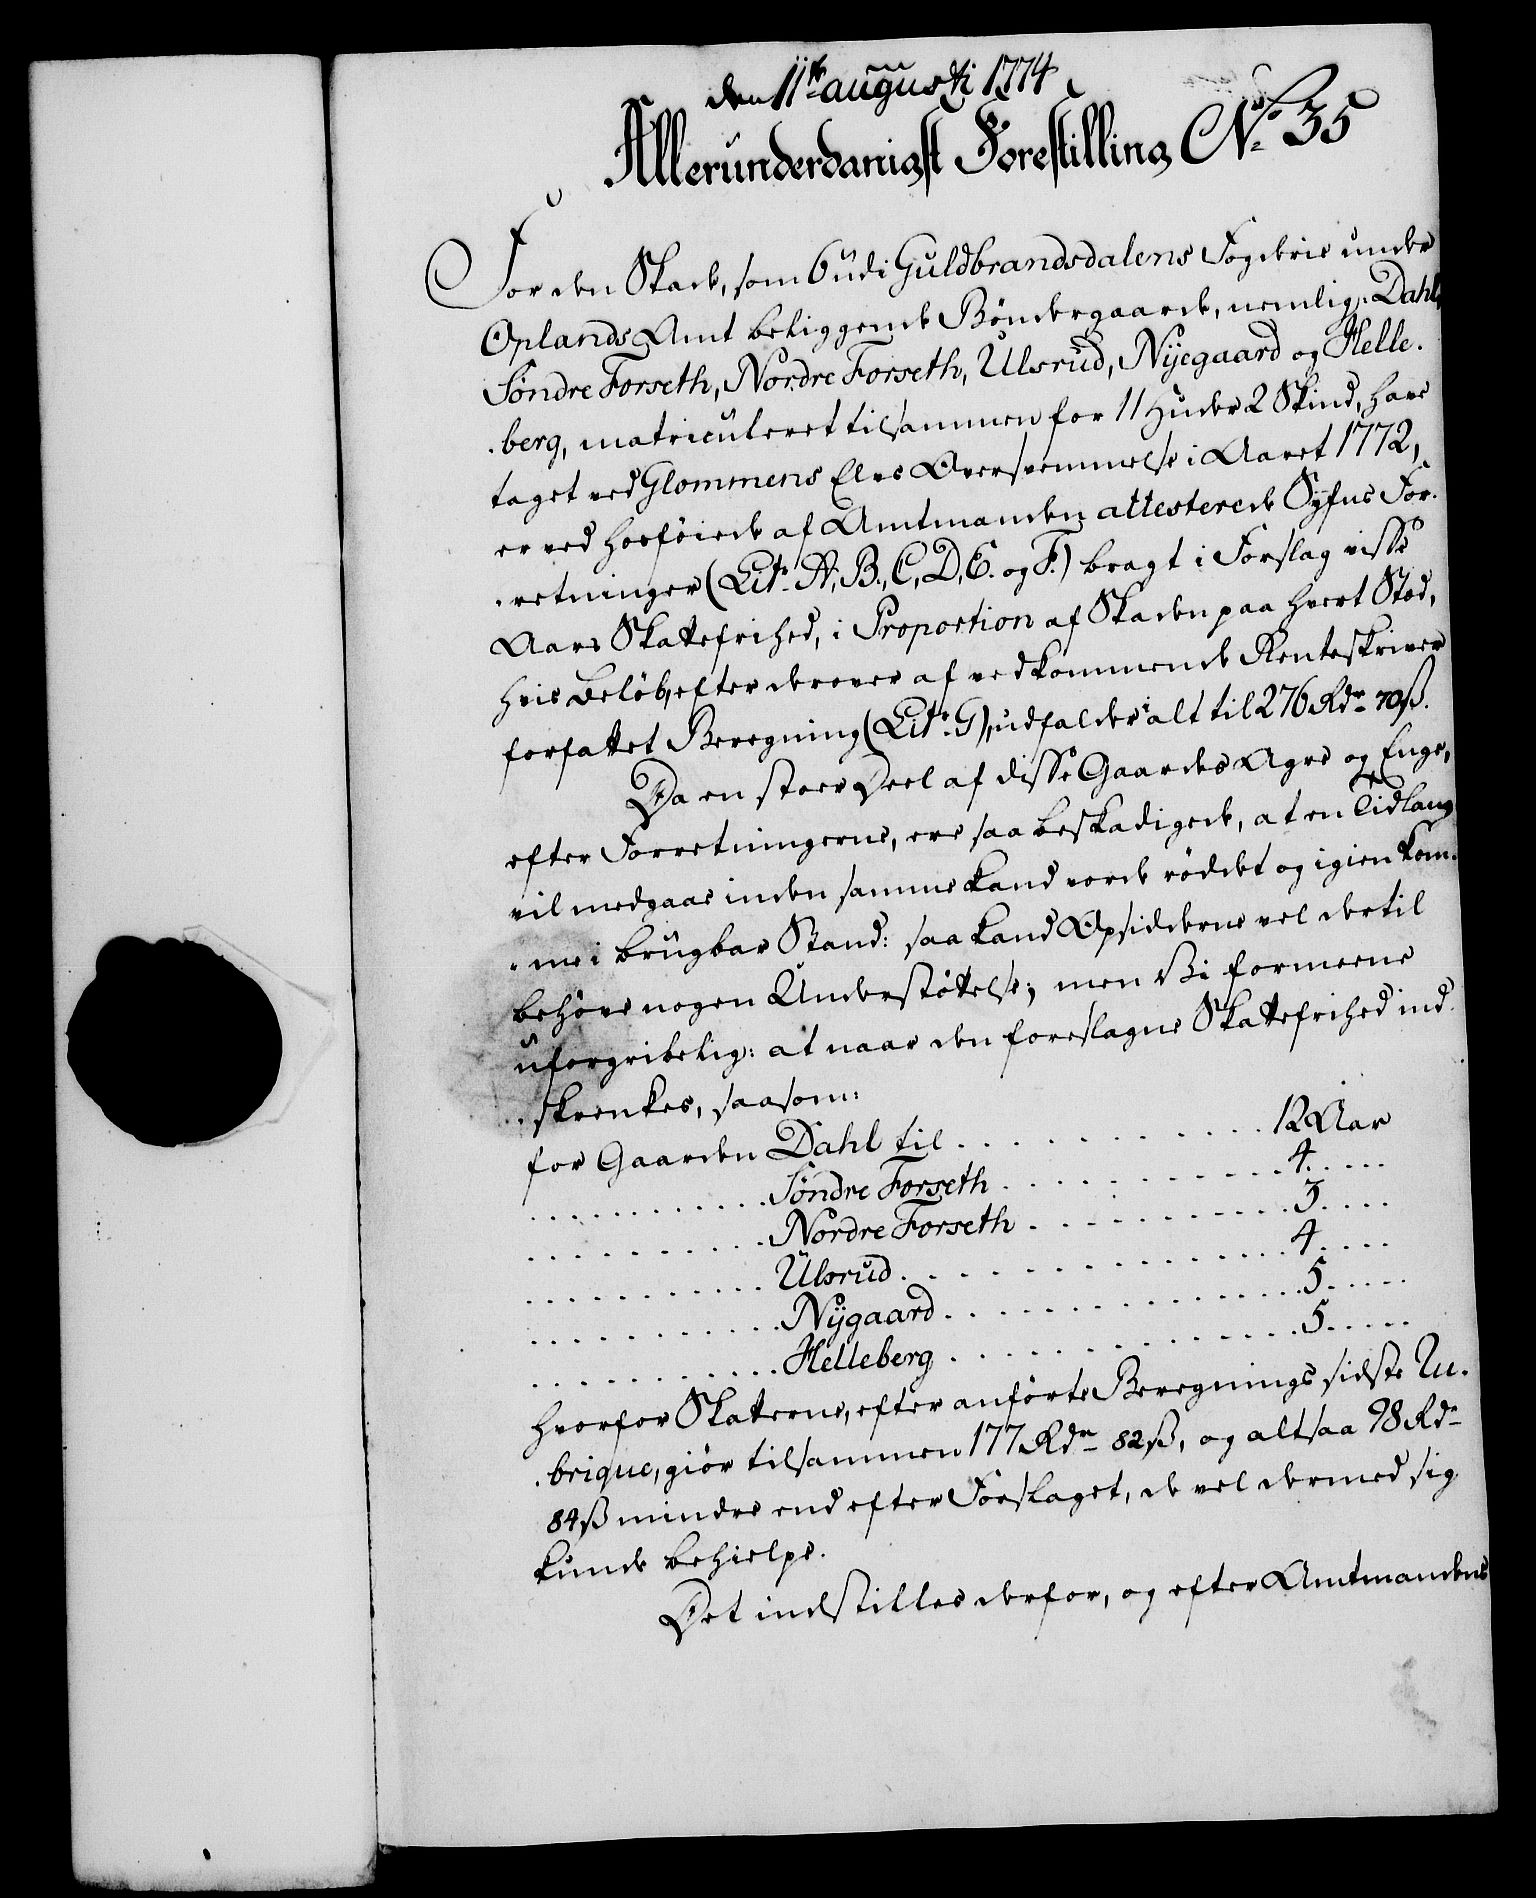 den 11te augusti 1774
Allerunderdanigst Forestilling No 35
For den Skade, som 6 udi Guldbrandsdalens Fogderie under
Oplands Amt beliggende Bøndergaarde, nemlig: Dahl,
Søndre Forseth, Nordre Forseth, Ulsrud, Nyegaard og Helle-
berg, matriculeret tilsammen for 11 Huder 2 Skind, have
taget ved Glommens Elvs Oversvemmelse i Aaret 1772,
er ved hosføiede af Amtmanden attesterede Syfns For-
retninger (Litr A, B, C, D, E. og F.) bragt i Forslag visse
Aars Skattefrihed, i Proportion af Skaden paa hvert Stød,
hvis Beløb, efter derover af vedkommende Renteskriver
forfattet Beregning (Litr. G), udfalder i alt til 276 Rdr 70 ß.
Da en stoer Deel af disse Gaardes Agre og Enge,
efter Forretningerne, ere saa beskadigede, at en Tidlang
vil medgaae inden samme kand vorde røddet og igien kom-
me i brugbar Stand: saa kand Opsidderne vel dertil
behøve nogen Understøttelse; men Vi formeene
uforgribelig: at naar den foreslagne Skattefrihed ind-
skrenkes, saasom:
for Gaarden Dahl til . . . . . . . . . . . . 12 Aar
. . . . . . . . . . . . Søndre Forseth . . . . . . . . . . . . 4 . . . . .
. . . . . . . . . . . . Nordre Forseth . . . . . . . . . . . . 3 . . . . .
. . . . . . . . . . . . Ulsrud . . . . . . . . . . . . . . . . 4 . . . . .
. . . . . . . . . . . . Nygaard . . . . . . . . . . . . . . . 5 . . . . .
. . . . . . . . . . . . Helleberg . . . . . . . . . . . . . . 5 . . . . .
hvorfor Skatterne, efter anførte Beregnings sidste Ru-
brique, giør tilsammen 177 Rdr 82 ß, og altsaa 98 Rdr
84 ß mindre end efter Forslaget, de vel dermed sig
kunde behielpe.
Det indstilles derfor, og efter Amtmandens